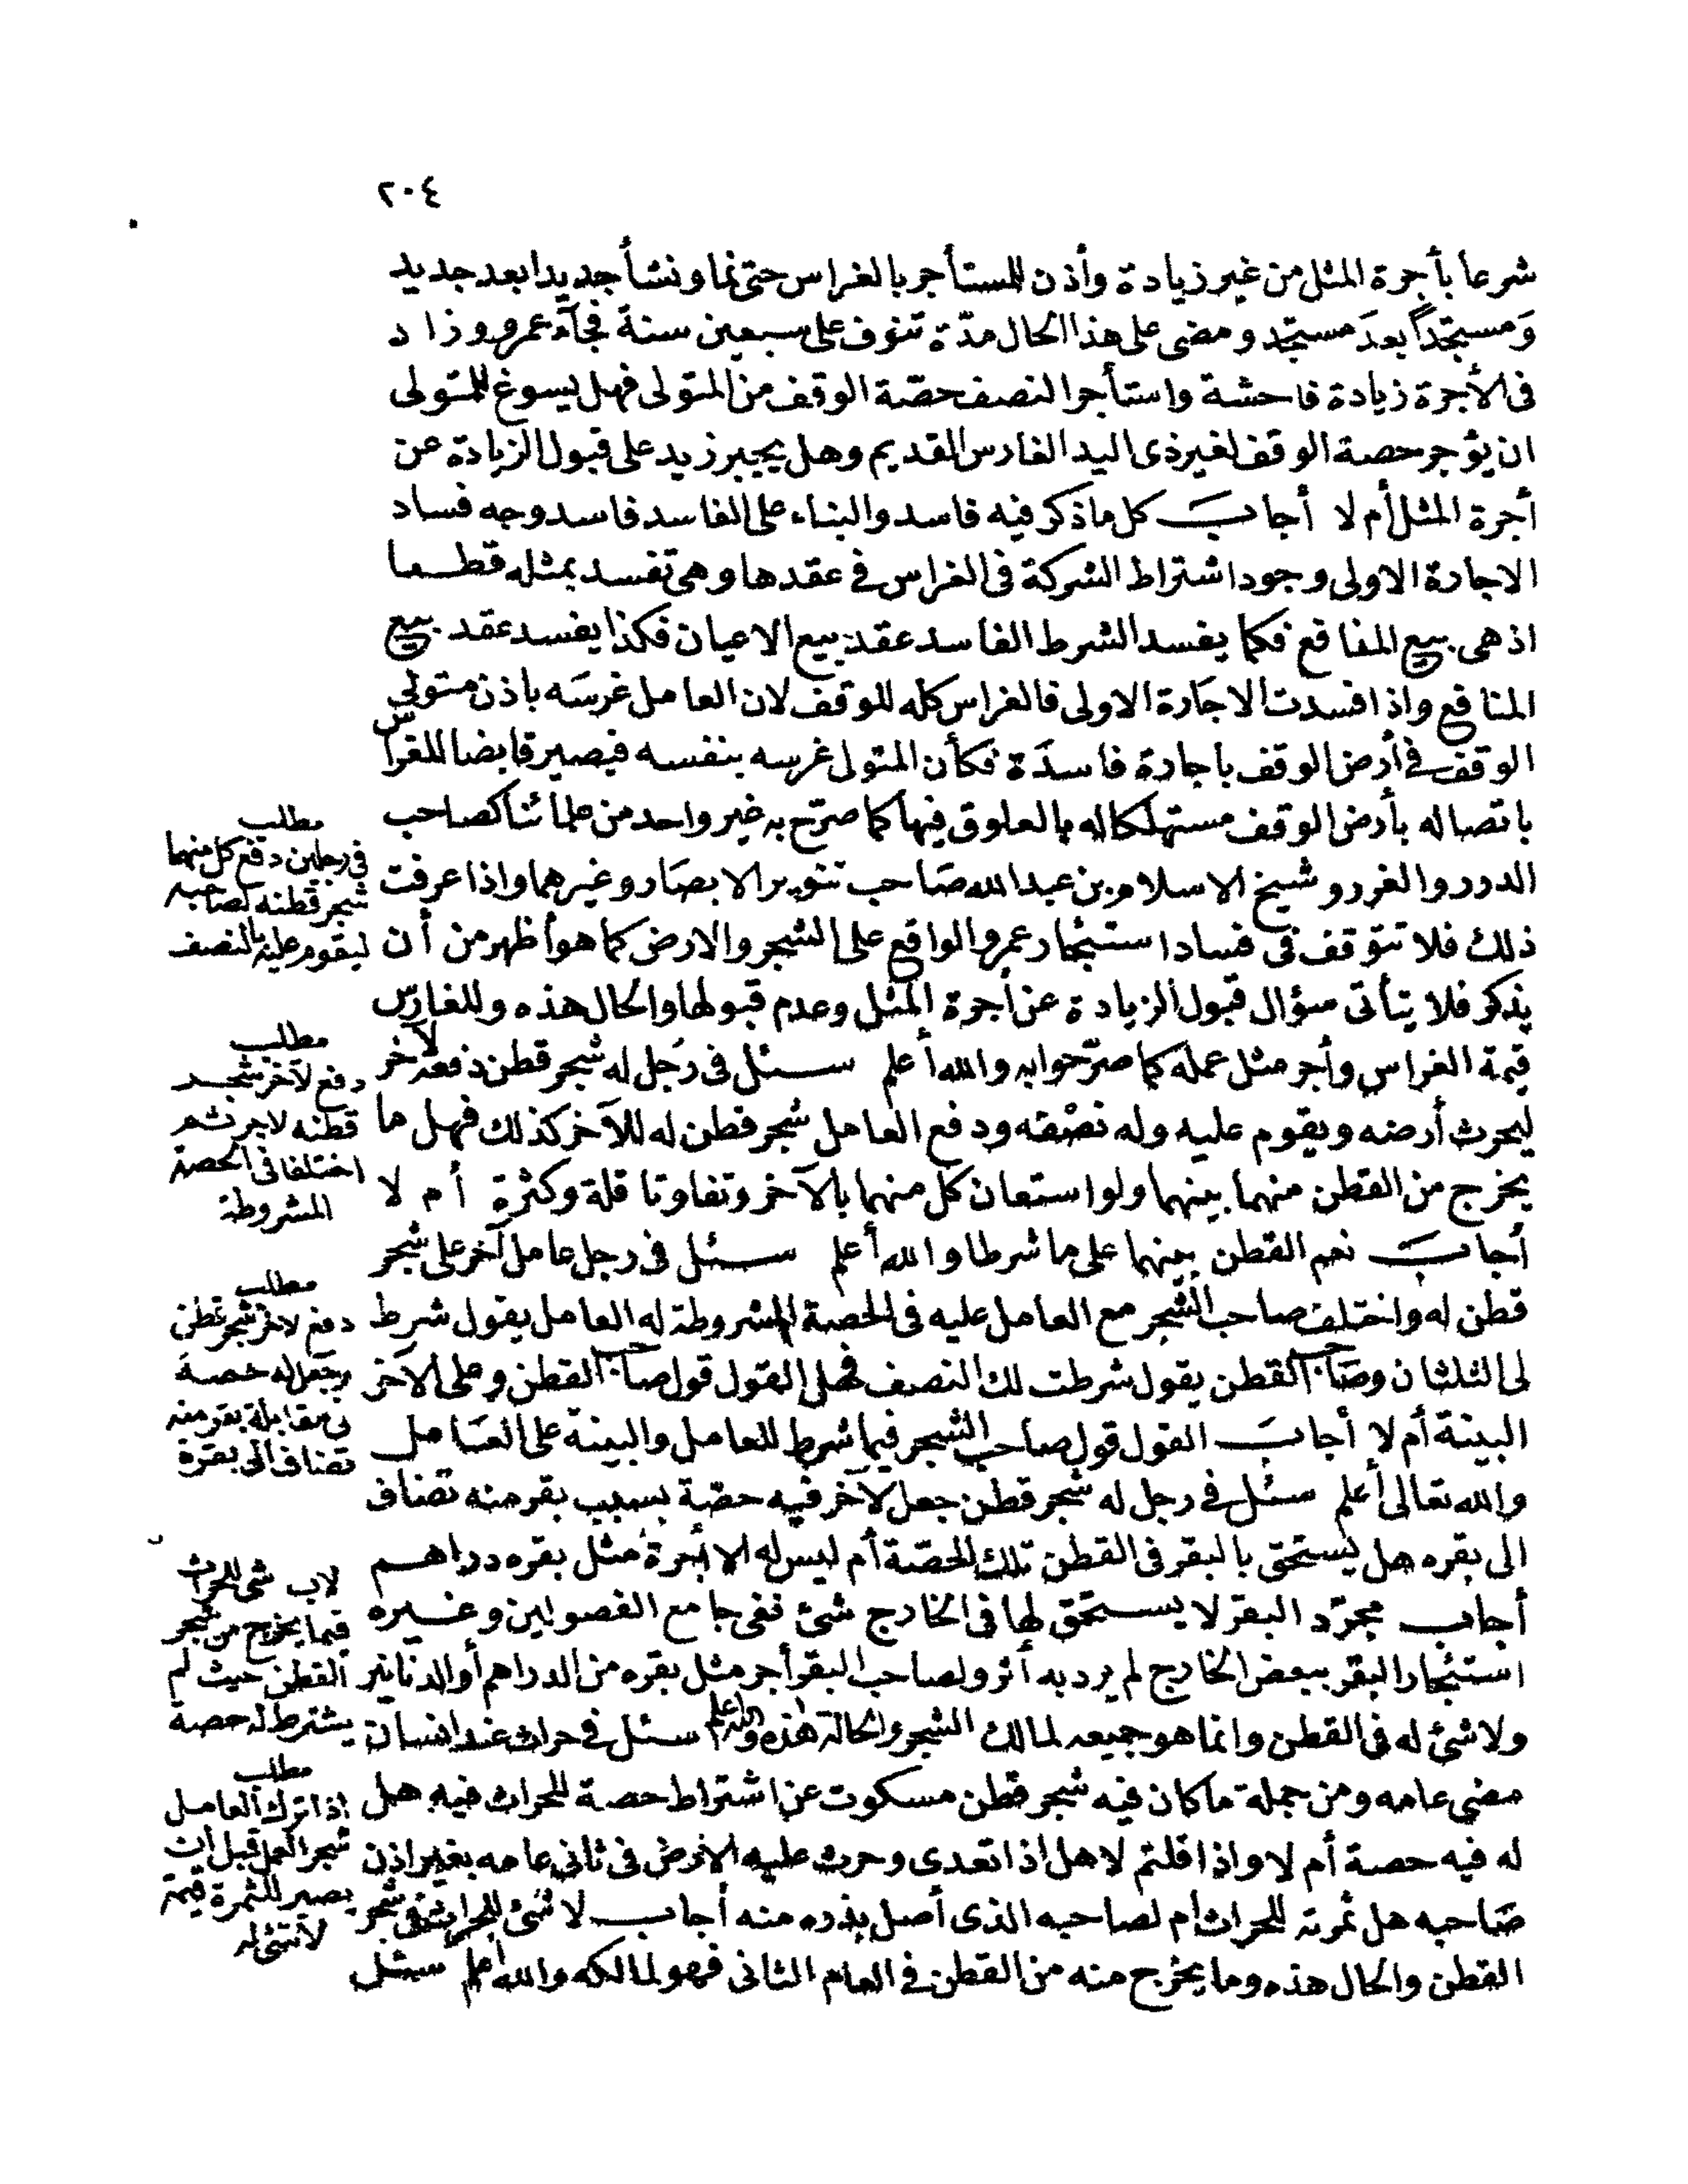 ٢٠٤
شرعا بأجرة المثل من غير زيادة وأذن للمستأجر بالغراس حتى نما ونشأ جديدا بعد جديد
وَمستجدّاً بعدَ مستجد ومضى على هذا الحال مدّة تنوف على سبعين سنة فجآء عمرو وزاد
فى الأجرة زيادة فاحشة واستأجر النصف حصّة الوقف من المتولى فهل يسوغ للمتولى
ان يؤجر حصة الوقف لغير ذى اليد الغارس القديم وهل يجبر زيد على قبول الزيادة عن
أجرة المثل أم لا أجابَ كل ما ذكر فيه فاسد والبناء على الفاسد فاسد وجه فساد
الاجارة الاولى وجود اشتراط الشركة فى الغراس فى عقدها وهى تفسد بمثله قطعا
اذ هى بيع المنافع فكما يفسد الشرط الفاسد عقد بيع الاعيان فكذا يفسد عقد بيع
المنافع واذا فسدت الاجَارة الاولى فالغراس كله للوقف لان العامل غرسَه باذن متولى
الوقف فى أرض الوقف باجارة فاسدَة فكأن المتولى غرسه بنفسه فيصير قابضا للغراس
باتصاله بأرض الوقف مستهلكا له بالعلوق فيها كما صرّح به غير واحد من علمائنا كصاحب
الدرر والغرر وشيخ الاسلام بن عبد الله صَاحب تنوير الابصَار وغيرهما واذا عرفت
ذلك فلا تتوقف فى فساد استئجار عمرو الواقع على الشجر والارض كما هو أظهر من أن
يذكر فلا يتأتى سؤال قبول الزيادة عن أجرة المثل وعدم قبولها والحال هذه وللغارس
قيمة الغراس وأجر مثل عمله كما صرّحوا به والله أعلم سئل فى رَجل له شجر قطن دفعه لآخر
ليحرث أرضه ويقوم عليه وله نصْفه ودفع العامل شجر قطن له للآخر كذلك فهل ما
يخرج من القطن منهما بينهما ولو استعان كل منهما بالآخر وتفاوتا قلة وكثرة أم لا
أجابَ نعم القطن بينهما على ما شرطا والله أعلم سئل فى رجل عامل آخر على شجر
قطن له واختلف صاحب الشجر مع العامل عليه فى الحصة المشروطة له العامل يقول شرط
لى الثلثان وصَاحب القطن يقول شرطت لك النصف فهل القول قول صاحب القطن وعلى الآخر
البينة أم لا أجابَ القول قول صاحب الشجر فيما شرط للعامل والبينة على العَامل
والله تعالى أعلم سئل فى رجل له شجر قطن جعل لآخر فيه حصّة بسبب بقر منه تضاف
الى بقره هل يستحق بالبقر فى القطن تلك الحصّة أم ليس له الا أجرة مثل بقره دراهم
أجاب مجرّد البقر لا يستحق لها فى الخارج شئ ففى جامع الفصولين وغيره
استئجار البقر ببعض الخارج لم يرد به أثر ولصاحب البقر أجر مثل بقره من الدراهم أو الدنانير
ولا شئ له فى القطن وانما هو جميعه لمالك الشجر والحالة هذه والله أعلم سئل فى حراث عند انسان
مضى عامه ومن جملة ما كان فيه شجر قطن مسكوت عن اشتراط حصة للحراث فيه هل
له فيه حصة أم لا واذا قلتم لا هل اذا تعدى وحرث عليه الارض فى ثانى عامه بغير اذن
صَاحبه هل ثمرته للحراث أم لصاحبه الذى أصل بذره منه أجاب لا شئ للحراث فى شجر
القطن والحال هذه وما يخرج منه من القطن فى العام الثانى فهو لمالكه والله أعلم سئل
مطلب
فى رجلين دفع كل منهما
شجر قطنه لصاحبه
ليقوم عليه بالنصف
مطلب
دفع لآخر شجر
قطنه لاجر ثم
اختلفا فى الحصة
المشروطة
مطلب
دفع لآخر شجر قطن
وجعل له حصة
فى مقابلة بقر منه
تضاف الى بقره
شئ للحراث
فيما يخرج من شجر
القطن حيث لم
يشترط له حصة
مطلب
اذا ترك العامل
شجر العمل قبل ان
يصير للثمرة قيمة
لا شئ له